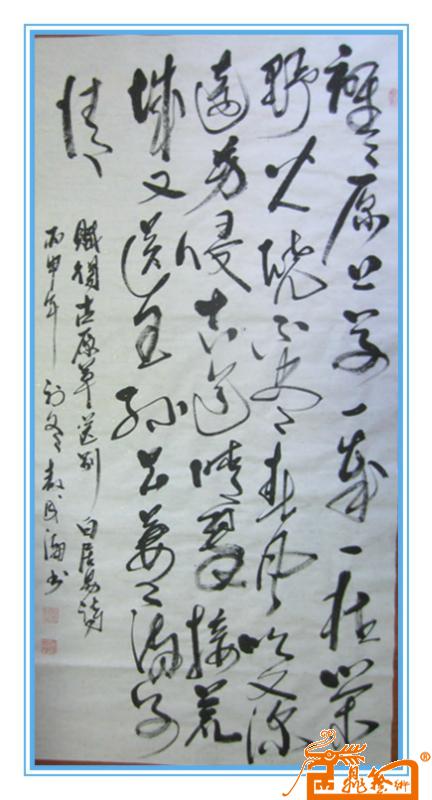 離〻原上草一歲一枯榮
野火燒不盡春風吹又深
遠芳侵古道晴翠接荒
城又送王孫去萋〻滿別
情
賦得古原草送别 白居易詩
丙申年 初冬 民海书